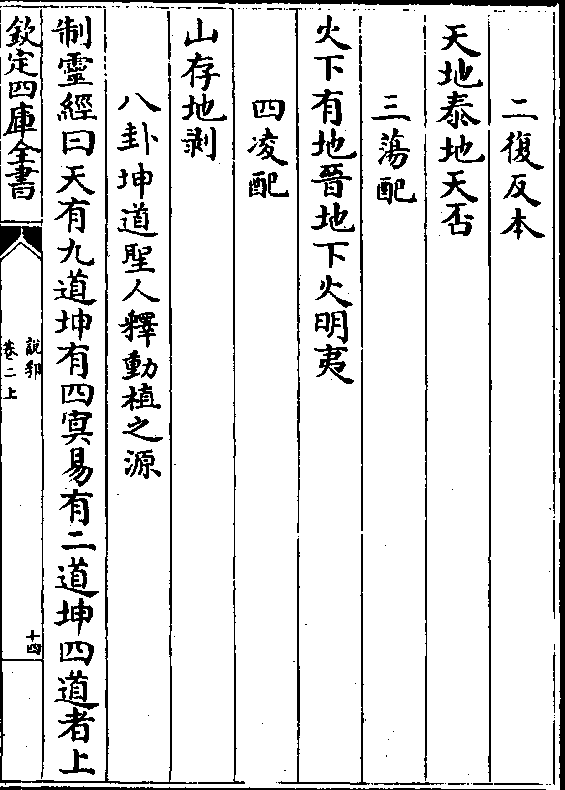 二復反本
天地泰地天否
三蕩配
火下有地晉地下火明夷
四凌配
山存地剥
八卦坤道聖人釋動植之源
制靈經曰天有九道坤有四㝠易有二道坤四道者上
欽定四庫全書
說郛
卷二上
十四